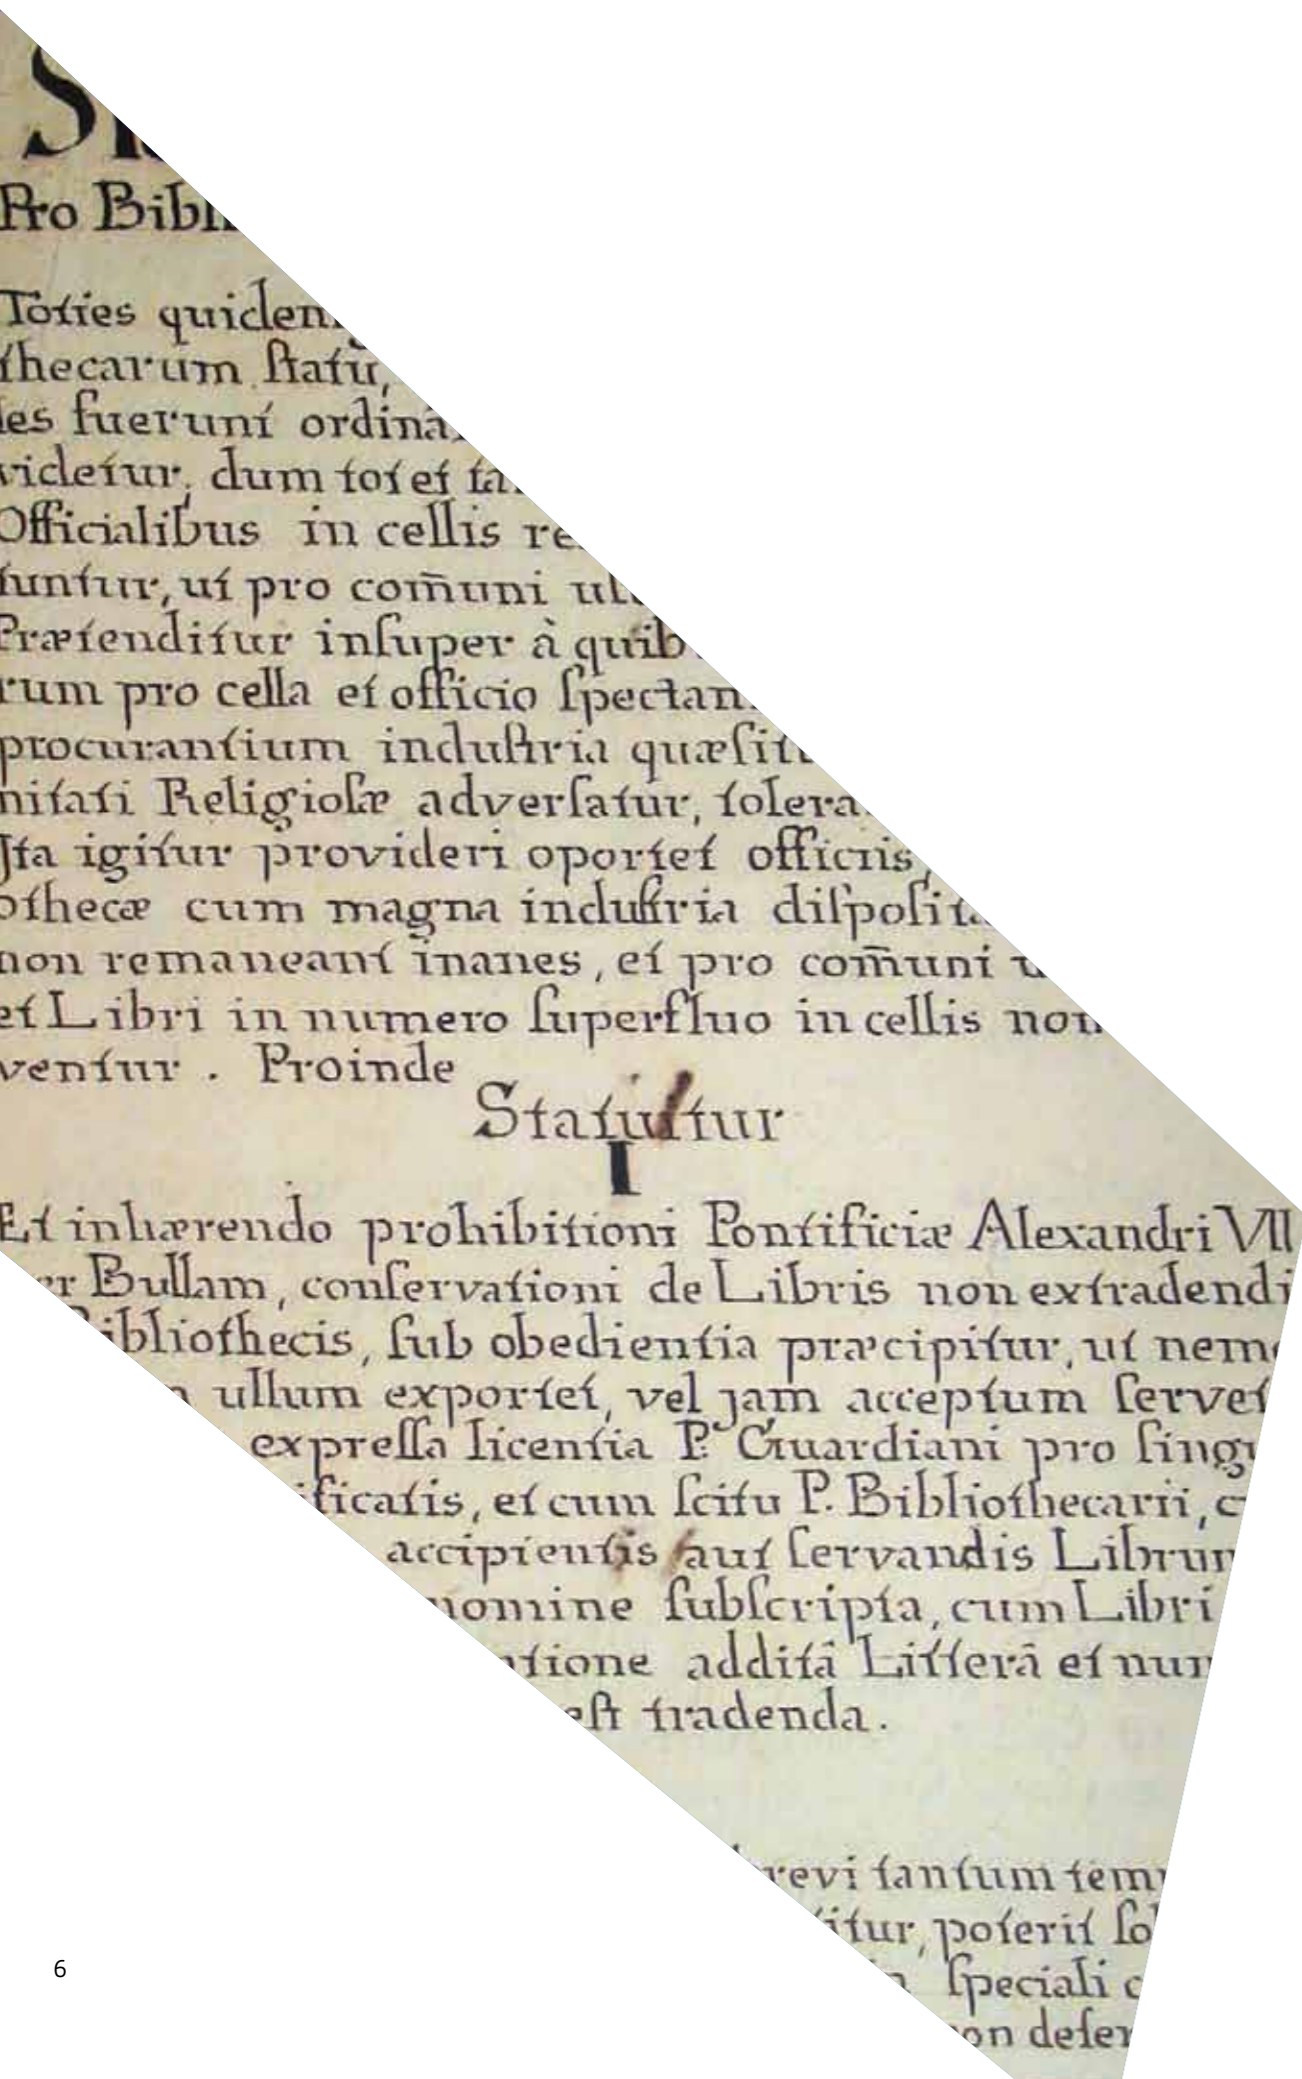 Pro
Toties
thecarum ſtatū,
fuerunt
videtur, dum tot et
Officialibus in cellis
ut pro com̄uni
Prætenditur inſuper à
rum pro cella et officio
procurantium induſtria
nitati Religioſæ adverſatur,
Jta igitur provideri oportet officiis,
othecæ cum magna induſtria
non remaneant inanes, et pro com̄uni
et Libri in numero ſuperfluo in cellis non
ventur. Proinde
Statuitur
I
Et inhærendo prohibitioni Pontificiæ Alexandri VII
Bullam, conſervationi de Libris non extradendi
Bibliothecis, ſub obedientia præcipitur, ut
ullum exportet, vel jam acceptum ſervet
expreſſa licentia P. Guardiani pro
et cum ſcitu P. Bibliothecarii,
accipientis aut ſervandis
nomine ſubſcripta, cum Libri
additâ Litterâ et
eſt tradenda.
tantum
poterit
ſpeciali
6